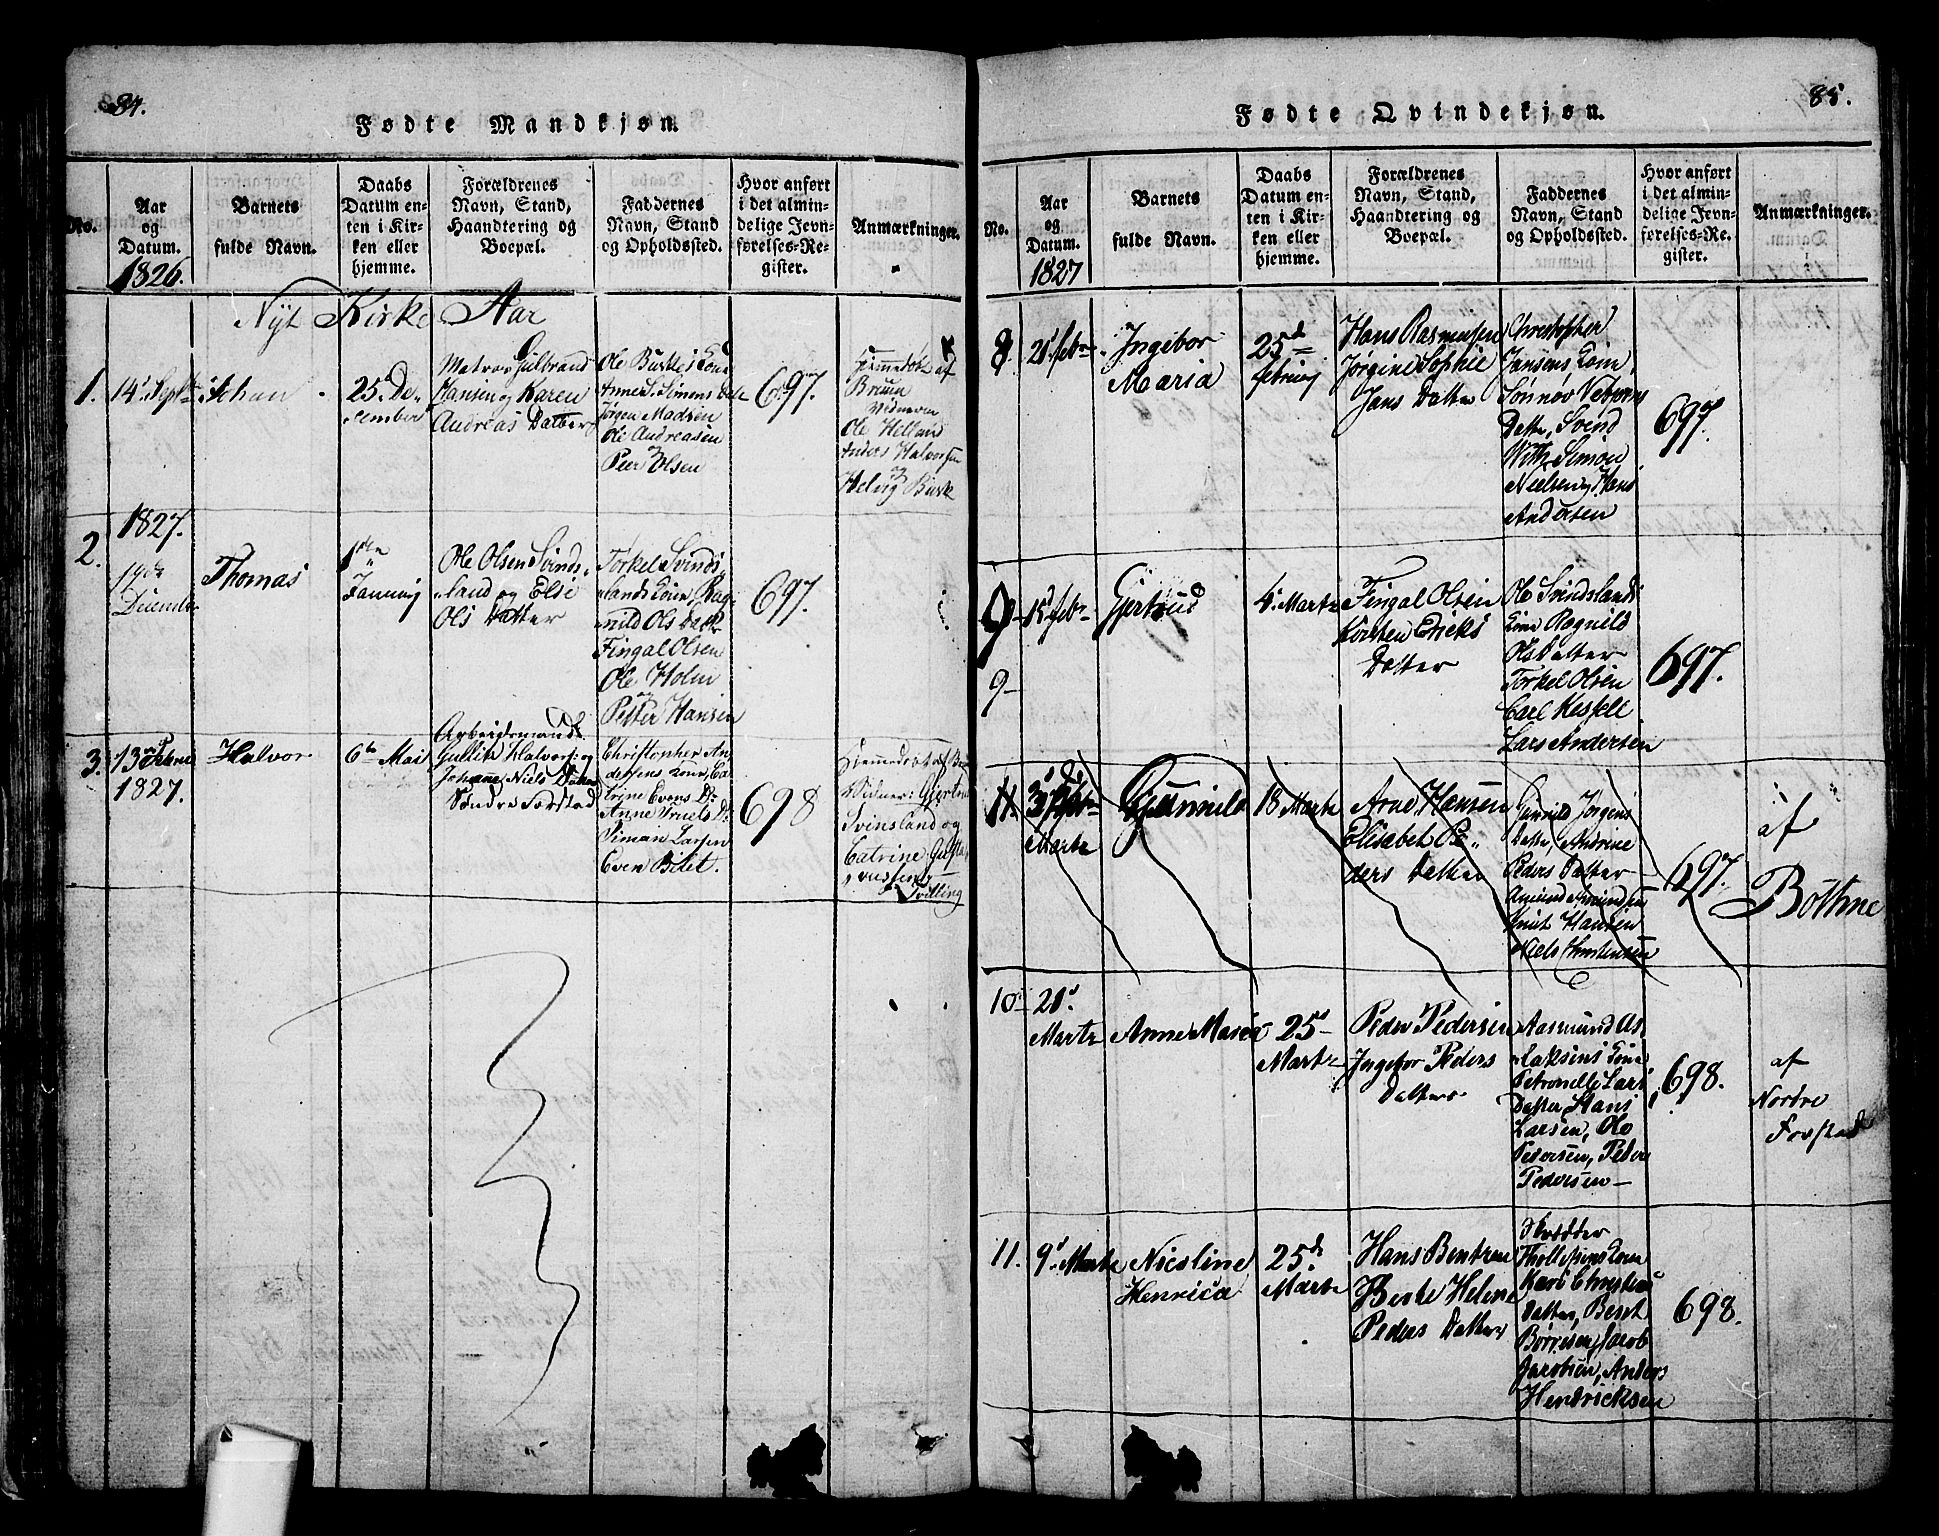 84.
Fødte Mandkjøn.
No.
Aar
og
Datum.
1826.
Barnets
fulde Navn.
Daabs
Datum en-
ten i Kir-
ken eller
hjemme.
Forældrenes
Navn, Stand,
Haandtering og
Boepæl.
Faddernes
Navn, Stand
og Opholdssted.
Hvor anført
i det almin-
delige Jevn-
førelses-Re-
gister.
Anmærkninger.
Nyt Kirke Aar
1.
14. Septr
Johan
25. De-
cember
Matros Gulbrand
Hansen og Karen
Andreas Datter
Ole Buskes Kone
Anne S. Simens Datr
Jørgen Madsen
Ole Andreasen
og
Peer Olsen
697.
Hjemmedøbt af
Bruun
Vidner
Ole Helland
Anders Halvorsen
og
Helvig Busk
2.
1827.
19de
Decembr
Thomas
1ste
Januarj
Ole Olsen Svinds-
land og Elsi
Ols Datter
Torkel Svinds-
lands Kone Rag-
nild Ols Datr
Fingal Olsen
Ole Holm
og
Petter Hansen
697.
3.
13 Febru
1827.
Halvor
6te Mai
Arbeidsmand
Gullik Halvors. og
Johanne Niels Datter
Søndre Forstad
Christopher An-
dersens Kone, Ca-
trine Evens Dr
Anne Truels Dr
Siman Larsen
Even Bilet.
698
Hjemmedøbt af
Vidner: Gjertru
Svinsland og
Catrine Gusta-
vussen
Tvilling
85.
Fødte Qvindekjøn.
No.
Aar
og
Datum.
1827
Barnets
fulde Navn.
Daabs
Datum en-
ten i Kir-
ken eller
hjemme.
Forældrenes
Navn, Stand,
Haandtering og
Boepæl.
Faddernes
Navn, Stand
og Opholdssted.
Hvor anført
i det almin-
delige Jevn-
førelses-Re-
gister.
Anmærkninger.
8.
21 febr.
Ingebor
Maria
25d
februarj
Hans Rasmussen
Jørgine Sophie
Jans Datter
Christopher
Jansens Kone,
Sønnøv Vebiørns
Datter, Svend
With Simon
Nielsen og Hans
Andersen
697.
9
9-
15 febr
Gjertrud
4. Martz
Fingal Olsen
Kirsten Ericks
Datter
Ole Svindslands
Kone Ragnild
Ols Datter
Torkel Olsen
Carl Kessell
Lars Andersen
697.
11.
3d
Martz
Gunnild
18 Martz
Arne Hansen
Elisabet Pe-
ders Datter
Gunnild Jørgens
Datter, Andrine
Peders Datter
Amund Amundsen
Knut Hansen
Niels Christensen
697.
af
Bothne
10
21.
Martz
Anne Maria
25
Martz
Peder Pedersen
Ingebor Peders
Datter
Aasmund As-
laksens Kone
Petronelle Lars
Datter, Hans
Larsen, Ole
Pedersen, Peder
Pedersen
698.
af
Nordre
Forstad
11.
9. Martz
Nicoline
Henrica
25d
Martz
Hans Bentsen
Berte Helene
Peders Datter
Skrædder
Thollefsens Kone
Karen Christens
Datter, Bernt
Børresen, Jacob
Jacobsen, Anders
Hendricksen
698.